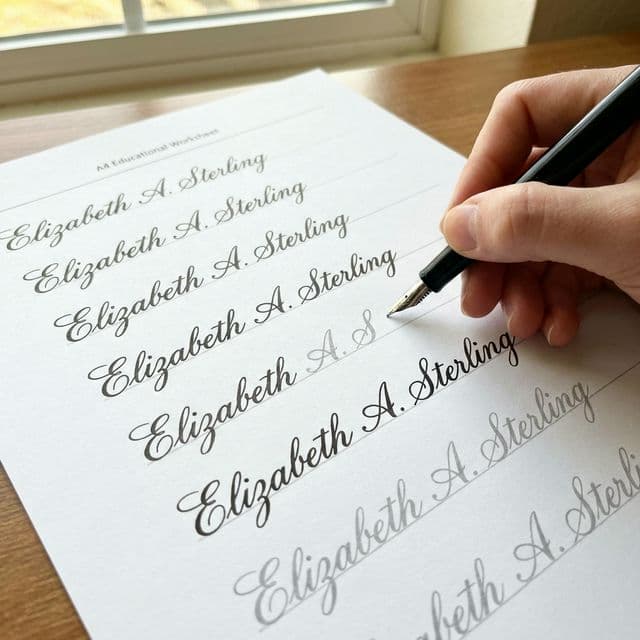 A4 Educational Worksheet
Elizabeth A. Sterling
Elizabeth A. Sterling
Elizabeth A. Sterling
Elizabeth A. Sterling
Elizabeth A. S
Elizabeth A. Sterling
Elizabeth A. Sterling
abeth A. Sterli